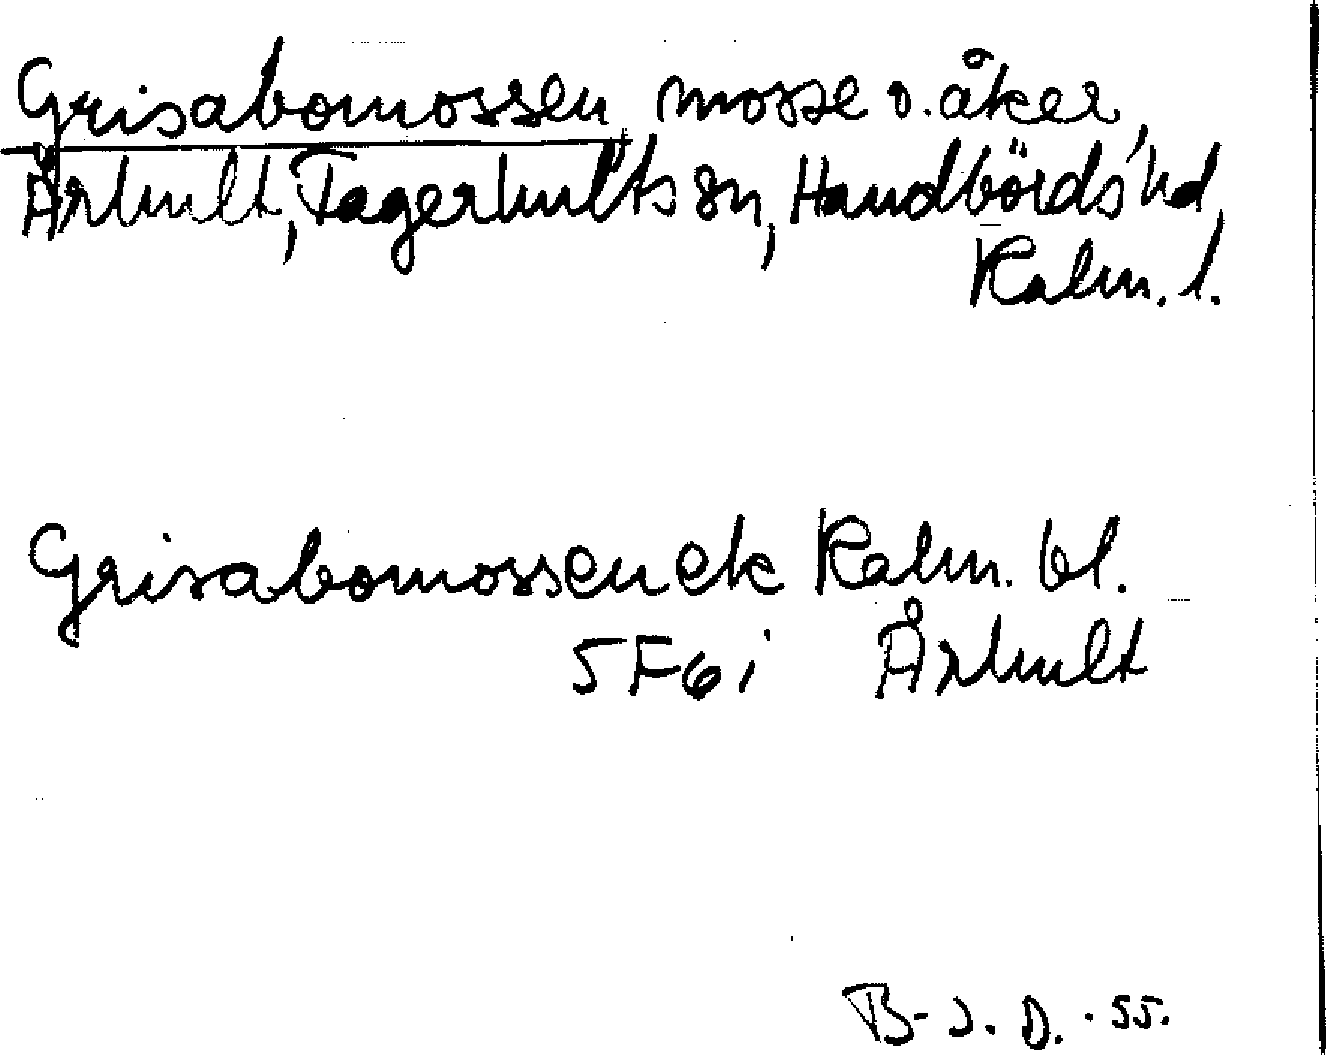 Grisabomossen mosse o. åker,
Århult, Fagerhults sn, Handbörds hd,
Kalm. l.
Grisabomossen ek Kalm. bl.
5F6i Århult
B-J. D. -55.